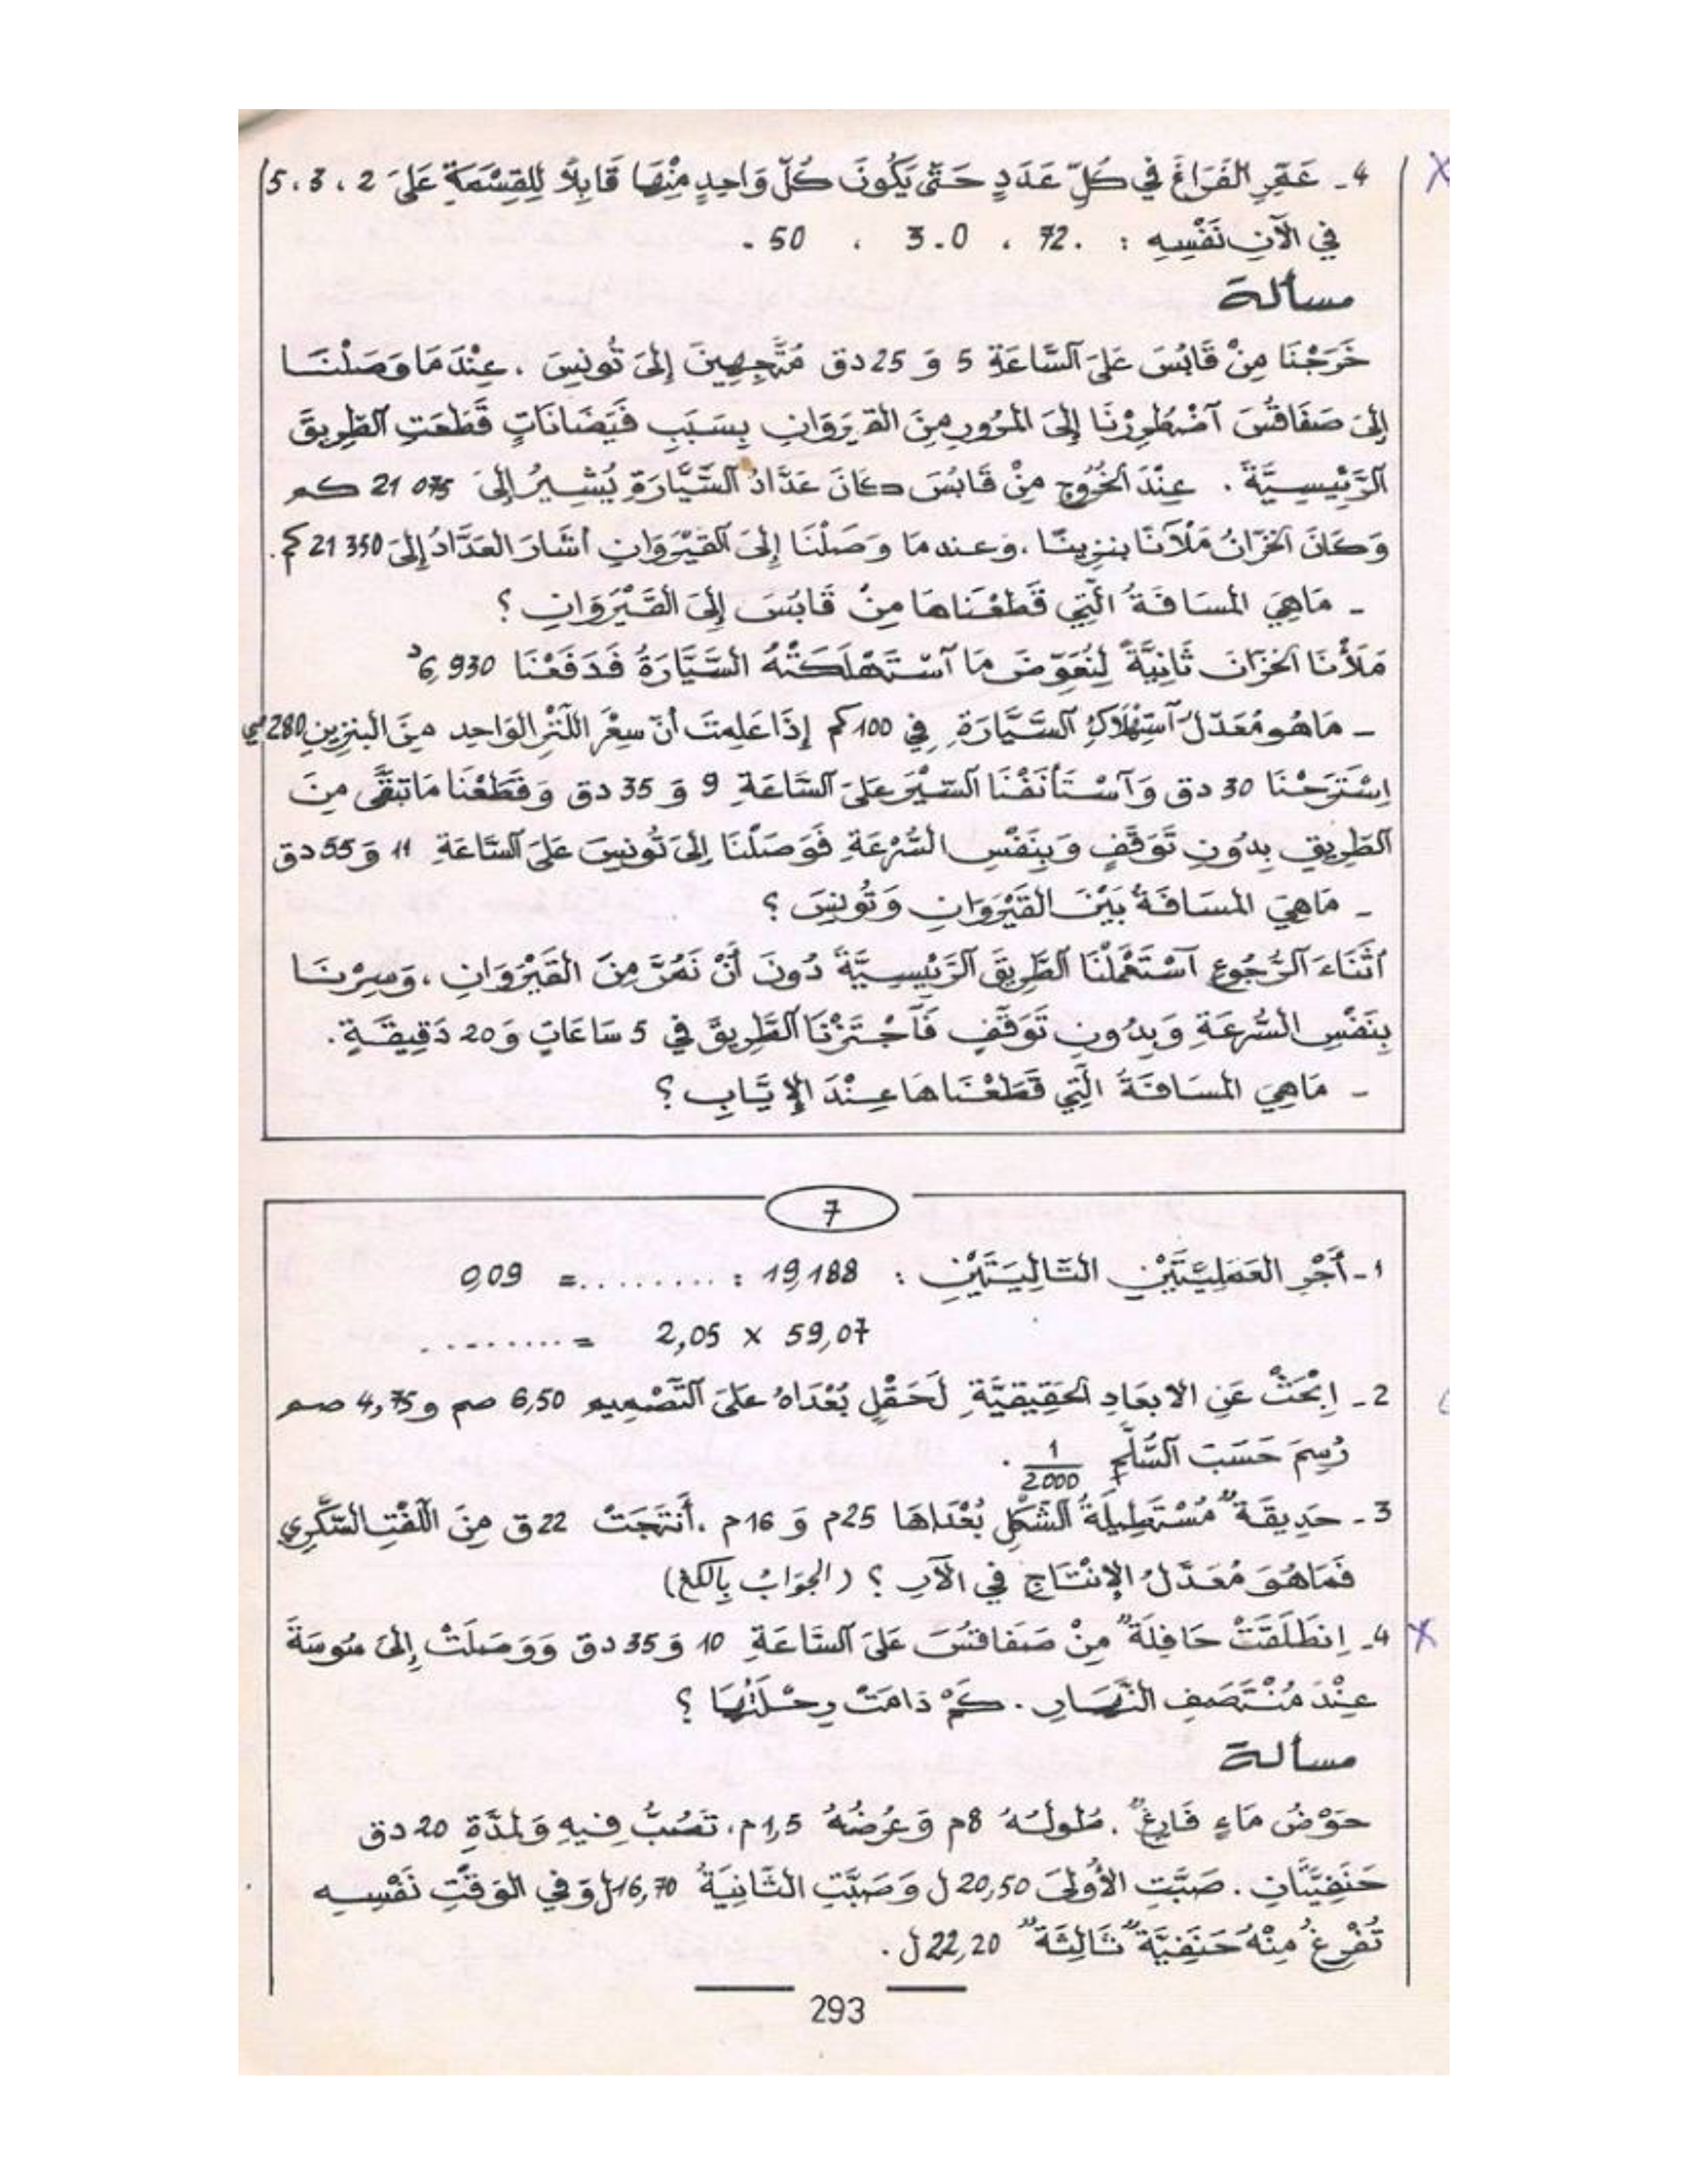 4 ـ عَمِّرِ الفَرَاغَ فِي كُلِّ عَدَدٍ حَتَّى يَكُونَ كُلُّ وَاحِدٍ مِنْهَا قَابِلاً لِلقِسْمَةِ عَلَى 2 ، 3 ، 5
فِي الآنِ نَفْسِهِ : .72 ، 3.0 ، 50.
مسألة
خَرَجْنَا مِنْ قَابُسَ عَلَى السَّاعَةِ 5 وَ 25 دق مُتَّجِهِينَ إِلَى تُونِسَ . عِنْدَمَا وَصَلْنَا
إِلَى صَفَاقُسَ اضْطُرِرْنَا إِلَى المُرُورِ مِنَ القَيْرَوَانِ بِسَبَبِ فَيَضَانَاتٍ قَطَعَتِ الطَّرِيقَ
الرَّئِيسِيَّةَ . عِنْدَ الخُرُوجِ مِنْ قَابُسَ كَانَ عَدَّادُ السَّيَّارَةِ يُشِيرُ إِلَى 21 075 كم
وَكَانَ الخَزَّانُ مَلْآنًا بنزينًا ، وَعندما وَصَلْنَا إِلَى القَيْرَوَانِ أَشَارَ العَدَّادُ إِلَى 21 350 كم .
ـ مَاهِيَ المَسَافَةُ الَّتِي قَطَعْنَاهَا مِنْ قَابُسَ إِلَى القَيْرَوَانِ ؟
مَلَأْنَا الخَزَّانَ ثَانِيَةً لِنُعَوِّضَ مَا اسْتَهْلَكَتْهُ السَّيَّارَةُ فَدَفَعْنَا 6,930 د
ـ مَاهُوَ مُعَدَّلُ اسْتِهْلَاكِ السَّيَّارَةِ فِي 100 كم إِذَا عَلِمْتَ أَنَّ سِعْرَ اللِّتْرِ الوَاحِدِ مِنَ البنزينِ 280 مي
اِسْتَرَحْنَا 30 دق وَاسْتَأْنَفْنَا السَّيْرَ عَلَى السَّاعَةِ 9 وَ 35 دق وَقَطَعْنَا مَا تَبَقَّى مِنَ
الطَّرِيقِ بِدُونِ تَوَقُّفٍ وَبِنَفْسِ السُّرْعَةِ فَوَصَلْنَا إِلَى تُونِسَ عَلَى السَّاعَةِ 11 وَ 55 دق
ـ مَاهِيَ المَسَافَةُ بَيْنَ القَيْرَوَانِ وَتُونِسَ ؟
أَثْنَاءَ الرُّجُوعِ اسْتَعْمَلْنَا الطَّرِيقَ الرَّئِيسِيَّةَ دُونَ أَنْ نَمُرَّ مِنَ القَيْرَوَانِ ، وَسِرْنَا
بِنَفْسِ السُّرْعَةِ وَبِدُونِ تَوَقُّفٍ فَاجْتَزْنَا الطَّرِيقَ فِي 5 سَاعَاتٍ وَ 20 دَقِيقَةٍ .
ـ مَاهِيَ المَسَافَةُ الَّتِي قَطَعْنَاهَا عِنْدَ الإِيَّابِ ؟
7
1 ـ أَجْرِ العَمَلِيَّتَيْنِ التَّالِيَتَيْنِ : 19,188 : ......... = 0,09
2,05 x 59,07 = .........
2 ـ اِبْحَثْ عَنِ الأبعَادِ الحَقِيقِيَّةِ لَحَقْلٍ بُعْدَاهُ عَلَى التَّصْمِيمِ 6,50 صم و 4,75 صم
رُسِمَ حَسَبَ السُّلَّمِ 1/2000 .
3 ـ حَدِيقَةٌ مُسْتَطِيلَةُ الشَّكْلِ بُعْدَاهَا 25م وَ 16م . أَنْتَجَتْ 22 ق مِنَ اللِّفْتِ السُّكَّرِي
فَمَاهُوَ مُعَدَّلُ الإِنْتَاجِ فِي الآرِ ؟ (الجَوَابُ بِالكغ)
4 ـ اِنطَلَقَتْ حَافِلَةٌ مِنْ صَفَاقُسَ عَلَى السَّاعَةِ 10 وَ 35 دق وَوَصَلَتْ إِلَى سُوسَةَ
عِنْدَ مُنْتَصَفِ النَّهَارِ . كَمْ دَامَتْ رِحْلَتُهَا ؟
مسألة
حَوْضُ مَاءٍ فَارِغٌ . طُولُهُ 8م وَعُرْضُهُ 1,5م . تَصُبُّ فِيهِ وَلِمُدَّةِ 20 دق
حَنَفِيَّتَانِ . صَبَّتِ الأُولَى 20,50 ل وَصَبَّتِ الثَّانِيَةُ 16,70 ل وَفِي الوَقْتِ نَفْسِهِ
تُفْرِغُ مِنْهُ حَنَفِيَّةٌ ثَالِثَةٌ 22,20 ل .
293